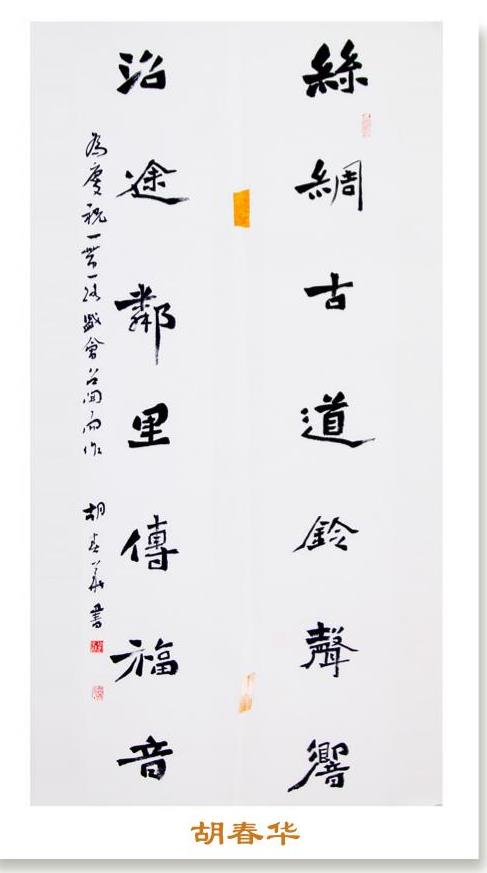 絲綢古道鈴聲響
沿途鄰里傳福音
為慶祝一带一路盛會召開而作
胡春華書
胡春华